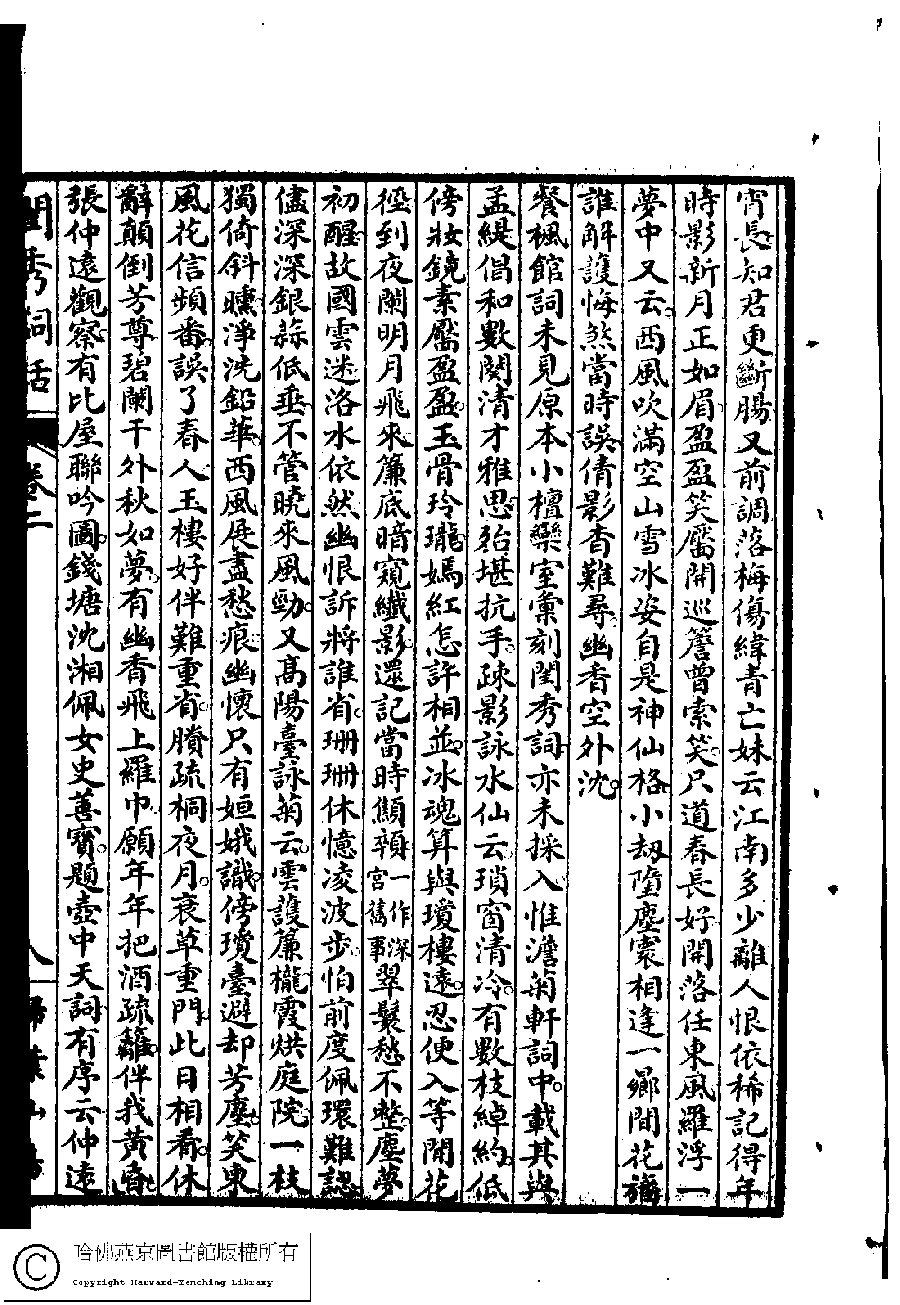 宵長知君更斷腸又前調落梅傷緯青亡妹云江南多少離人恨依稀記得年
時影新月正如眉盈盈笑靨開巡簷曾索笑只道春長好開落任東風羅浮一
夢中又云西風吹滿空山雪冰姿自是神仙格小劫墮塵寰相逢一瞬間花旛
誰解護悔煞當時誤倩影香難尋幽香空外沈
餐楓館詞未見原本小檀欒室彙刻閨秀詞亦未採入惟澹菊軒詞中載其與
孟緹倡和數闋清才雅思殆堪抗手疎影詠水仙云瑣窗清冷有數枝綽約低
傍妝鏡素靨盈盈玉骨玲瓏嫣紅怎許相並冰魂算與瓊樓遠忍便入等閒花
徑到夜闌明月飛來簾底暗窺纖影還記當時顦顇一作深宮舊事翠鬟愁不整塵夢
初醒故國雲迷洛水依然幽恨訴將誰省珊珊休憶凌波步怕前度佩環難認
儘深深銀蒜低垂不管曉來風勁又高陽臺詠菊云雲護簾櫳霞烘庭院一枝
獨倚斜曛淨洗鉛華西風展盡愁痕幽懷只有姮娥識傍瓊臺避却芳塵笑東
風花信頻番誤了春人玉樓好伴難重省賸疏桐夜月衰草重門此日相看休
辭顛倒芳尊碧闌干外秋如夢有幽香飛上羅巾願年年把酒疏籬伴我黃昏
張仲遠觀察有比屋聯吟圖錢塘沈湘佩女史善寶題壺中天詞有序云仲遠
閨秀詞話
卷二
八
掃葉山房
哈佛燕京圖書館版權所有
Copyright Harvard-Yenching Library